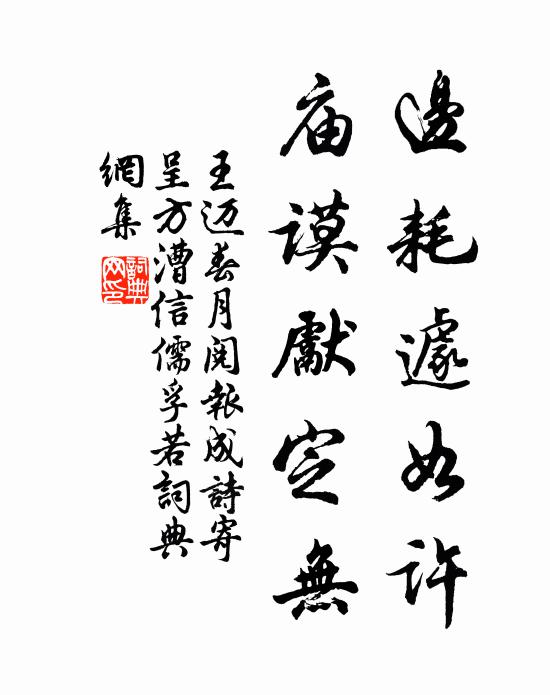 邊耗遽如許
庙謨獻定無
王迈春月阅報成詩寄
呈方漕信儒孚若詞典
網集
詞典網印